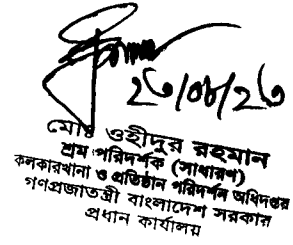 ২৩/০৮/২৩
মোঃ ওহীদুর রহমান
শ্রম পরিদর্শক (সাধারণ)
কলকারখানা ও প্রতিষ্ঠান পরিদর্শন অধিদপ্তর
গণপ্রজাতন্ত্রী বাংলাদেশ সরকার
প্রধান কার্যালয়